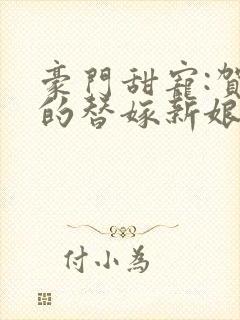 豪門甜寵:賀
的替嫁新娘
付小為